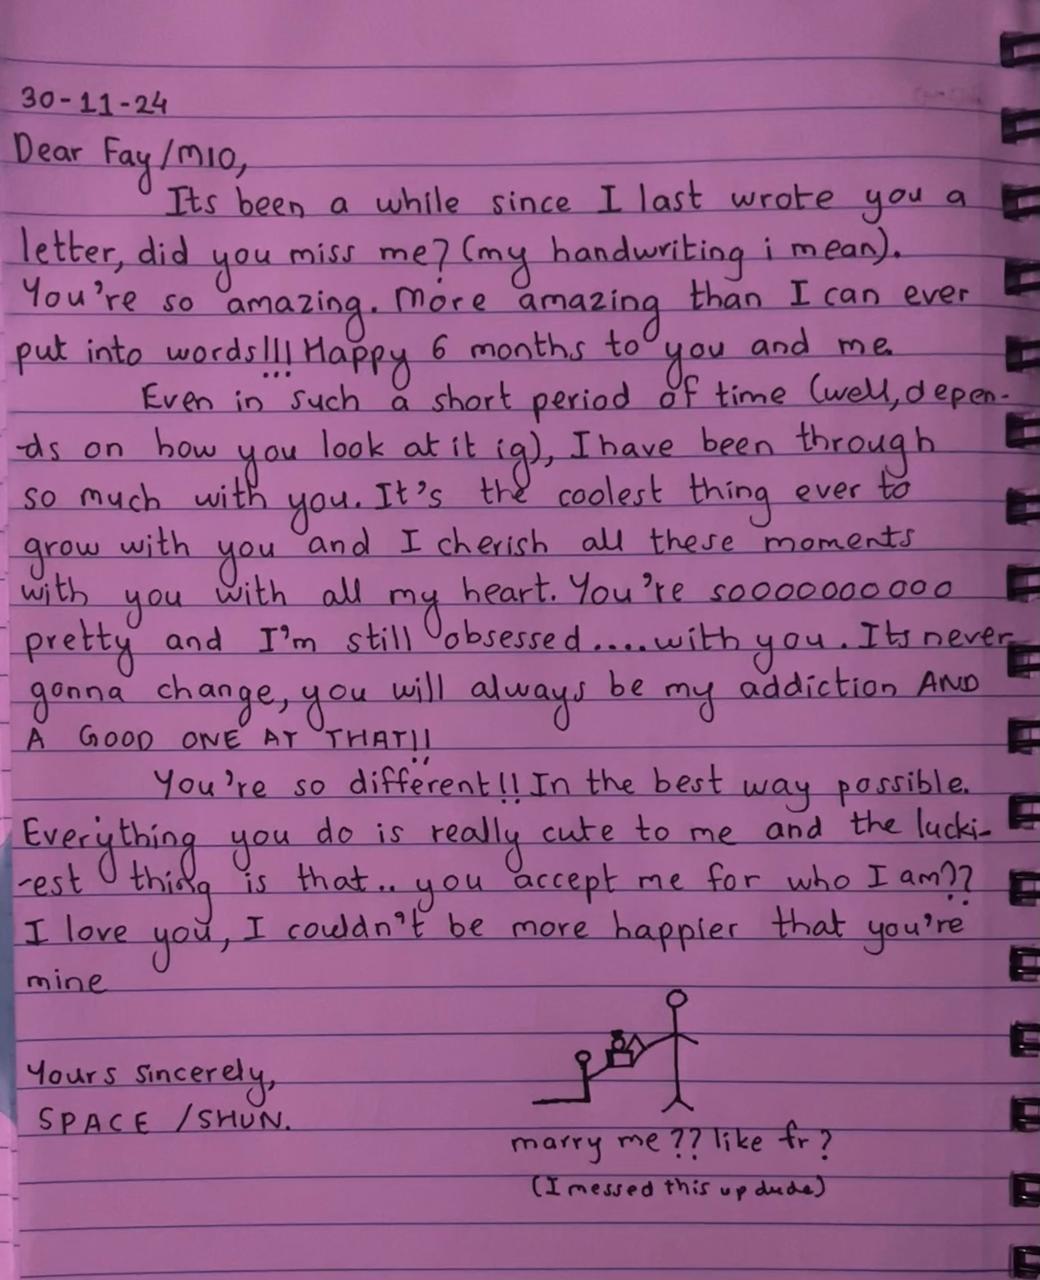 30-11-24
Dear Fay/MIO,
Its been a while since I last wrote you a
letter, did you miss me? (my handwriting i mean).
You're so amazing. More amazing than I can ever
put into words!!! Happy 6 months to you and me.
Even in such a short period of time (well, depen-
-ds on how you look at it ig), I have been through
so much with you. It's the coolest thing ever to
grow with you and I cherish all these moments
with you with all my heart. You're soooooooooo
pretty and I'm still obsessed....with you. Its never
gonna change, you will always be my addiction AND
A GOOD ONE AT THAT!!
You're so different!! In the best way possible.
Everything you do is really cute to me and the lucki-
-est thing is that.. you accept me for who I am??
I love you, I couldn't be more happier that you're
mine
Yours sincerely,
SPACE /SHUN.
marry me?? like fr?
(I messed this up dude)